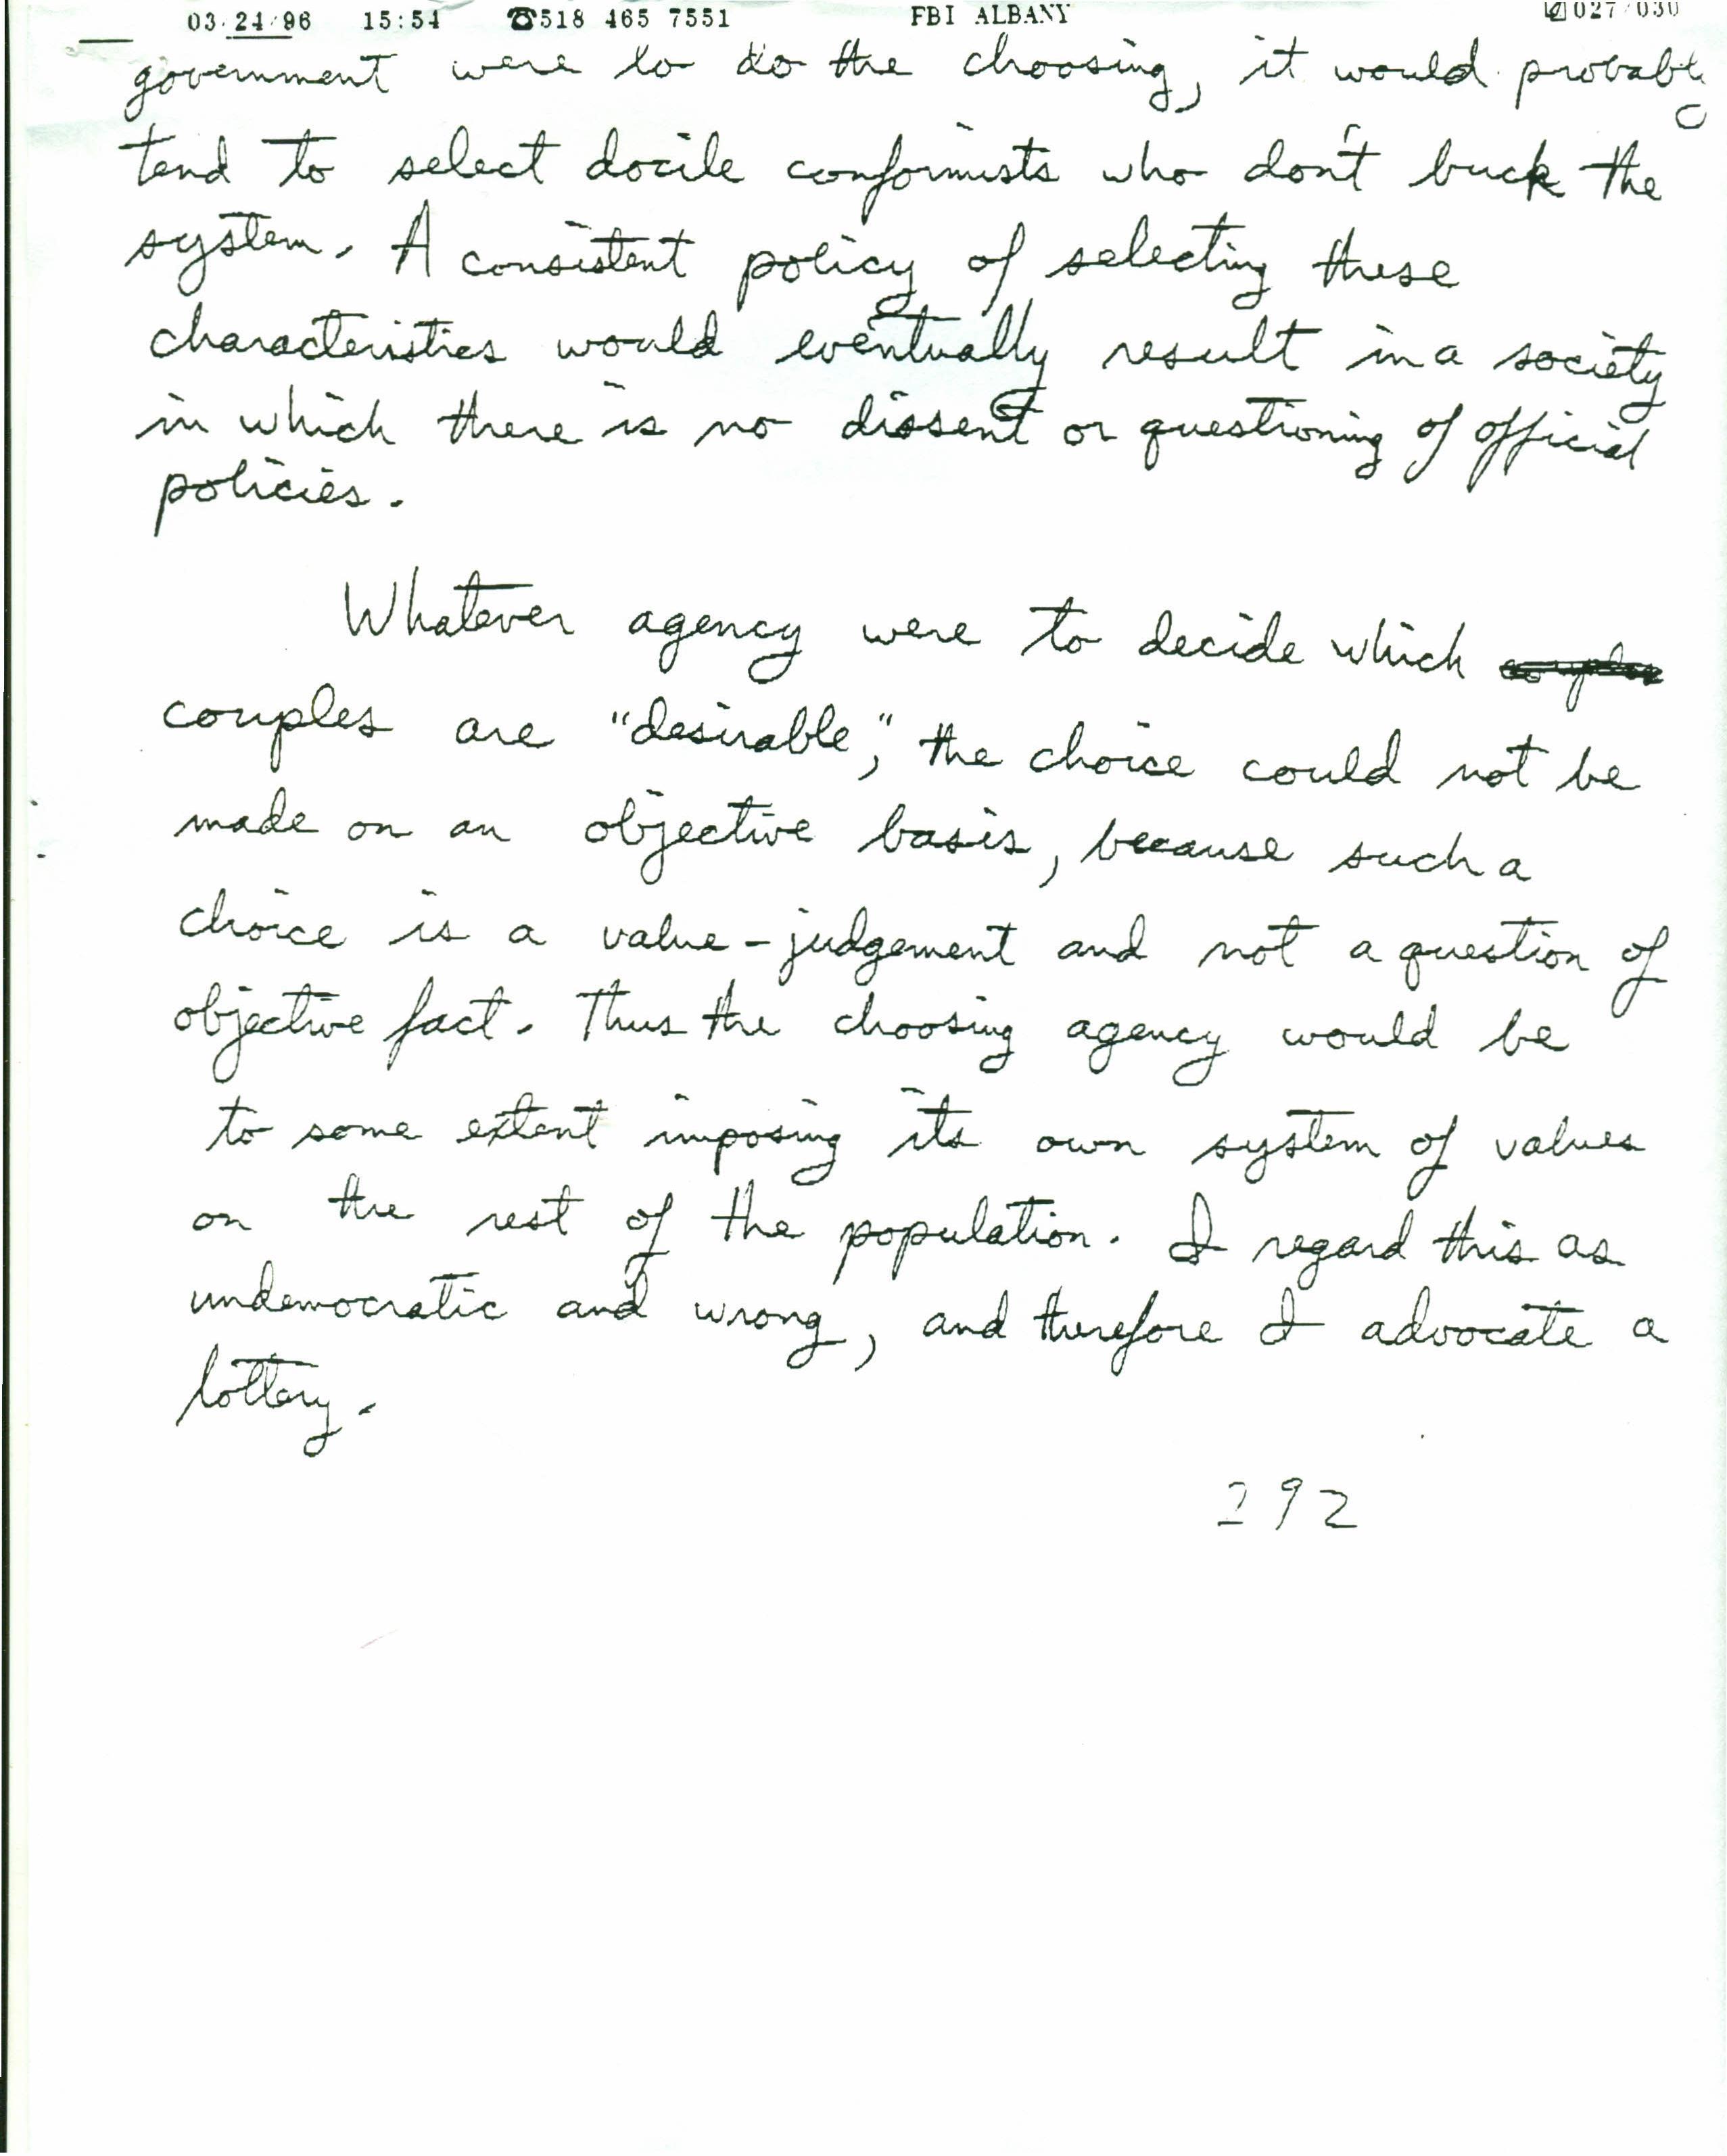 03/24/96 15:54 ☎518 465 7551 FBI ALBANY 027/030
government were to do the choosing, it would probably
tend to select docile conformists who don't buck the
system. A consistent policy of selecting these
characteristics would eventually result in a society
in which there is no dissent or questioning of official
policies.
Whatever agency were to decide which
couples are "desirable," the choice could not be
made on an objective basis, because such a
choice is a value-judgement and not a question of
objective fact. Thus the choosing agency would be
to some extent imposing its own system of values
on the rest of the population. I regard this as
undemocratic and wrong, and therefore I advocate a
lottery.
292